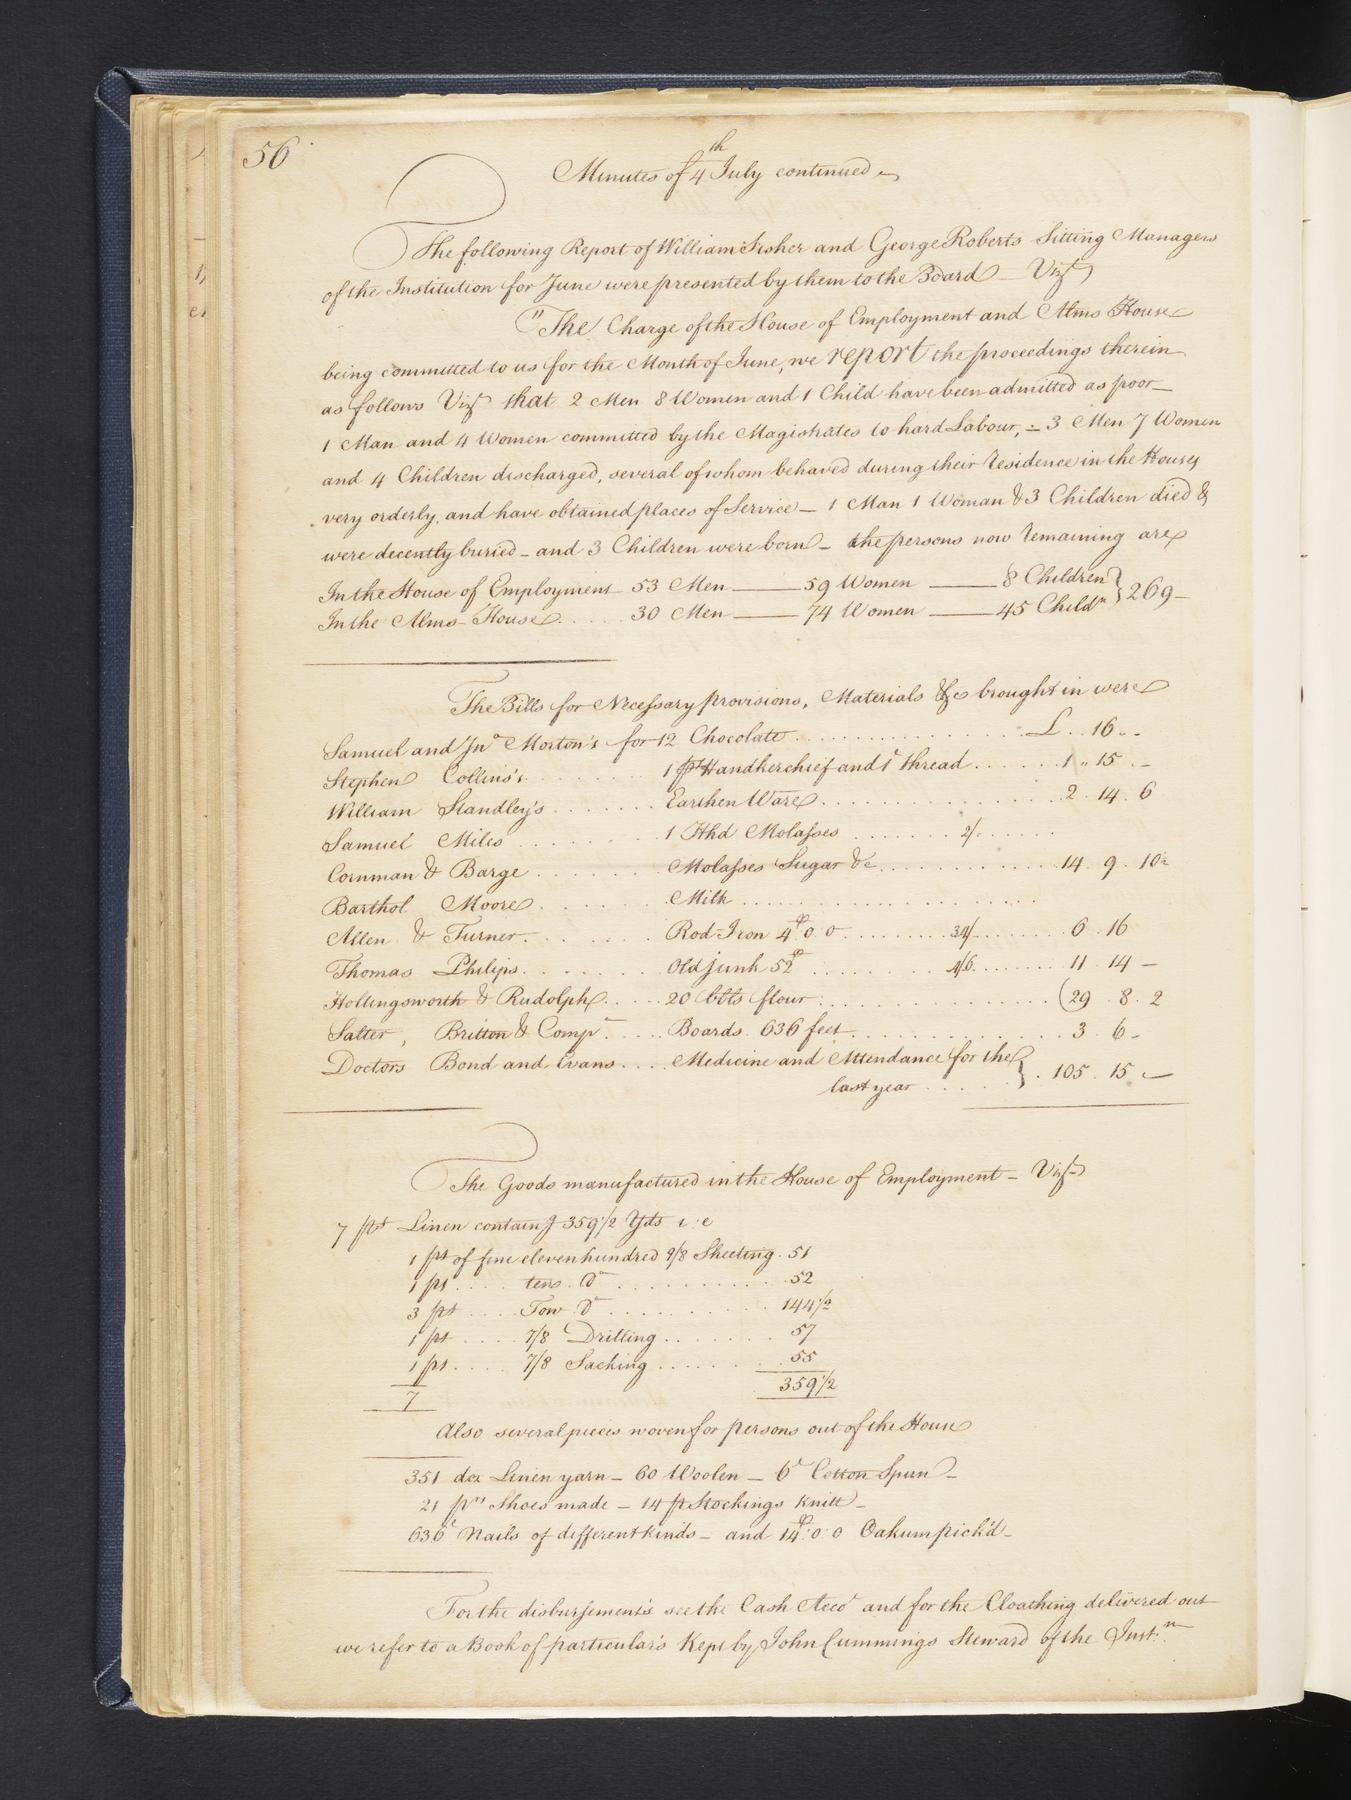 56
Minutes of 4th July continued
The following Report of William Fisher and George Roberts Sitting Managers
of the Institution for June were presented by them to the Board — Vizt
"The Charge of the House of Employment and Alms House
being committed to us for the Month of June, we report the proceedings therein
as follows Vizt that 2 Men 8 Women and 1 Child have been admitted as poor
1 Man and 4 Women committed by the Magistrates to hard Labour, – 3 Men 7 Women
and 4 Children discharged, several of whom behaved during their residence in the House
very orderly, and have obtained places of Service – 1 Man 1 Woman & 3 Children died &
were decently buried – and 3 Children were born – the persons now remaining are
In the House of Employment 53 Men — 59 Women — 8 Children } 269 –
In the Alms House . . . . . 30 Men — 74 Women — 45 Childn
The Bills for Necessary provisions, Materials &c brought in were
Samuel and Jno Morton's for 12 Chocolate . . . . . £ . . 16 . . -
Stephen Collins's . . . . . 1 ps Handkerchief and 1 d thread . . . . . 1 . . 15 . –
William Standley's . . . . . Earthen Ware . . . . . 2 . 14 . 6
Samuel Miles . . . . . 1 Hhd Molasses . . . . . 2/ . . . . .
Cornman & Barge . . . . . Molasses Sugar &c . . . . . 14 . 9 . 10
Barthol Moore . . . . . Milk . . . . .
Allen & Turner . . . . . Rod Iron 4 . 0 . 0 . . . . . 34/ . . . . . 6 . 16
Thomas Philips . . . . . Old junk 52 . . . . . 4/6 . . . . . 11 . 14 –
Hollingsworth & Rudolph . . . . . 20 bbls flour . . . . . (29 . 8 . 2
Salter, Britton & Comp . . . . . Boards 636 feet . . . . . 3 . 6 –
Doctors Bond and Evans . . . . Medicine and Attendance for the
last year . . . . . } . 105 . 15 . –
The Goods manufactured in the House of Employment – Vizt
7 ps Linen containg 359 1/2 Yds i:e
1 ps of fine eleven hundred 9/8 Sheeting . 51
1 ps . . . . tens Do . . . . . 52
3 ps . . . . Tow Do . . . . . 144 1/2
1 ps . . . . 7/8 Drilling . . . . . 57
1 ps . . . . 7/8 Sacking . . . . . 55
7 359 1/2
Also several pieces woven for persons out of the House
351 doz Linen yarn – 60 Woolen – 6 d Cotton Spun –
21 prs Shoes made – 14 p Stockings knitt –
636 Nails of different kinds – and 14 . 0 . 0 Oakum pick'd –
For the disbursements see the Cash Accot and for the Cloathing delivered out
we refer to a Book of particular's Kept by John Cummings Steward of the Instn